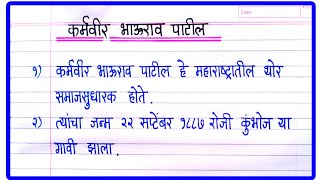 कर्मवीर भाऊराव पाटील
१) कर्मवीर भाऊराव पाटील हे महाराष्ट्रातील थोर
समाजसुधारक होते.
२) त्यांचा जन्म २२ सप्टेंबर १८८७ रोजी कुंभोज या
गावी झाला.